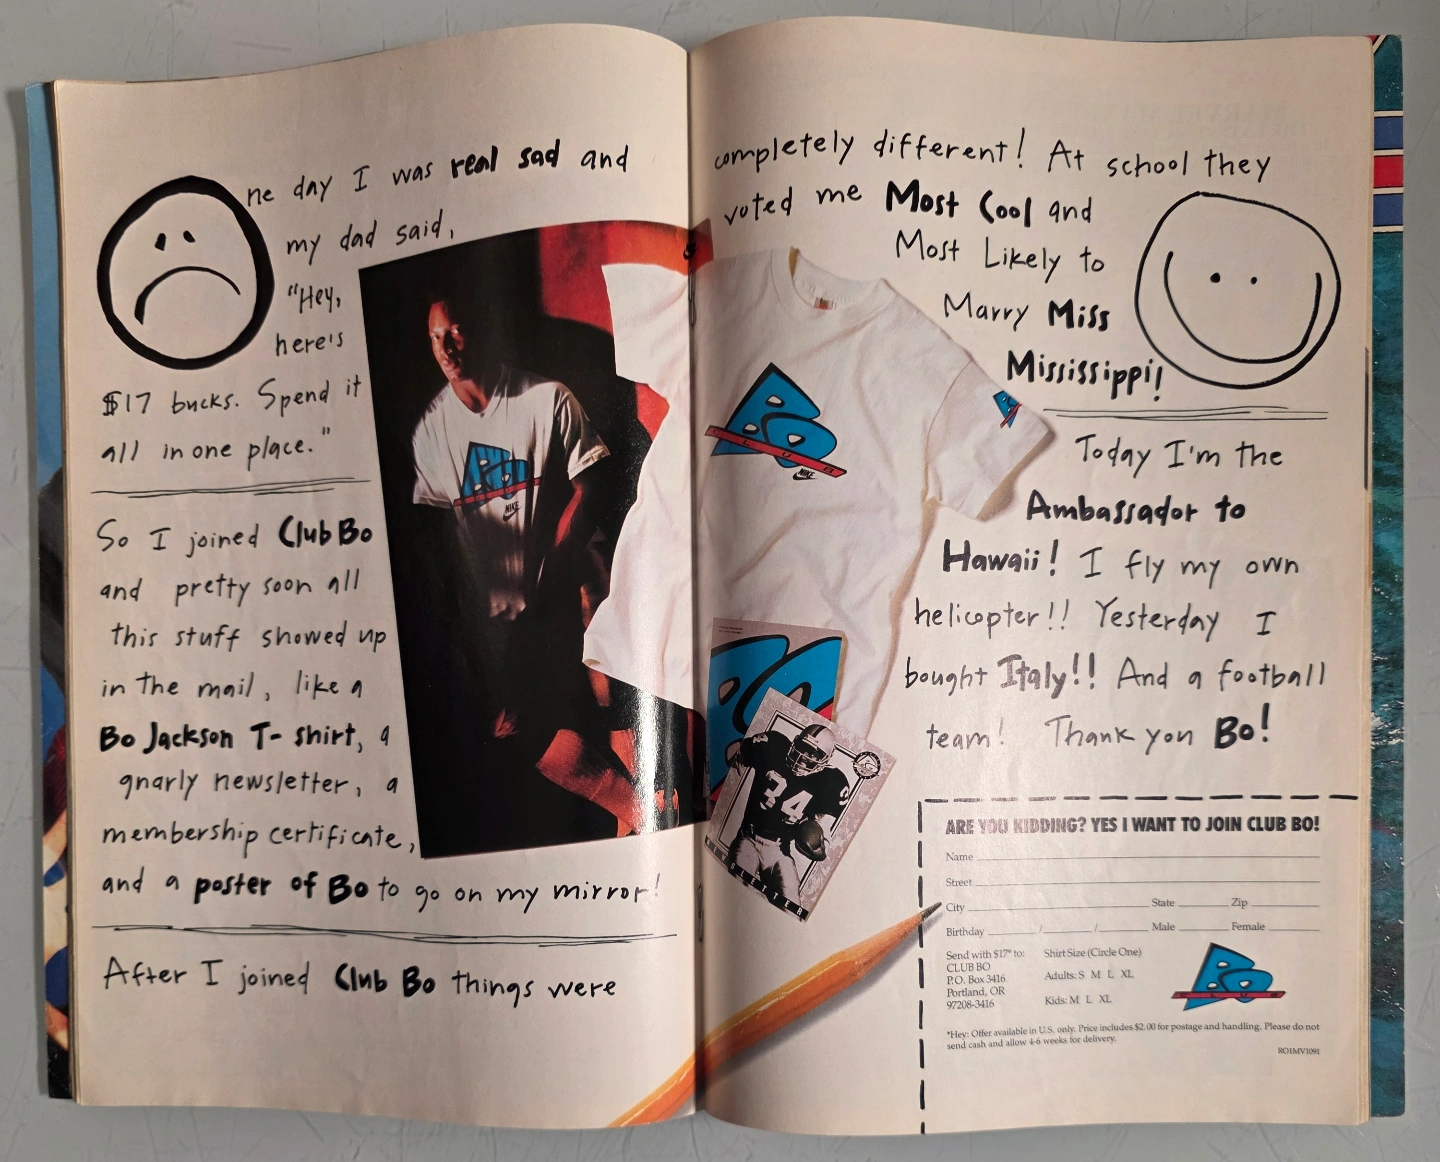 One day I was real sad and
my dad said,
"Hey,
here's
$17 bucks. Spend it
all in one place."
So I joined Club Bo
and pretty soon all
this stuff showed up
in the mail, like a
Bo Jackson T-shirt, a
gnarly newsletter, a
membership certificate,
and a poster of Bo to go on my mirror!
After I joined Club Bo things were
BO
CLUB
NIKE
completely different! At school they
voted me Most Cool and
Most Likely to
Marry Miss
Mississippi!
BO
CLUB
NIKE
Today I'm the
Ambassador to
Hawaii! I fly my own
helicopter!! Yesterday I
bought Italy!! And a football
team! Thank you Bo!
BO
34
NEWSLETTER
ARE YOU KIDDING? YES I WANT TO JOIN CLUB BO!
Name
Street
City State Zip
Birthday / / Male Female
Send with $17* to:
CLUB BO
P.O. Box 3416
Portland, OR
97208-3416
Shirt Size (Circle One)
Adults: S M L XL
Kids: M L XL
BO
CLUB
*Hey: Offer available in U.S. only. Price includes $2.00 for postage and handling. Please do not
send cash and allow 4-6 weeks for delivery.
RO1MV1091